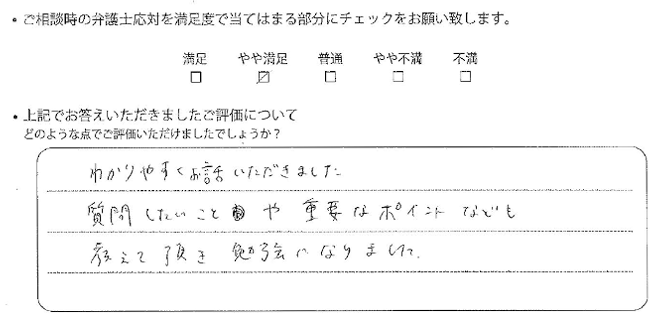 ・ご相談時の弁護士応対を満足度で当てはまる部分にチェックをお願い致します。
満足 やや満足 普通 やや不満 不満
□ ☑ □ □ □
・上記でお答えいただきましたご評価について
どのような点でご評価いただけましたでしょうか？
わかりやすくお話いただきました
質問したいことや重要なポイントなども
教えて頂き勉強になりました。